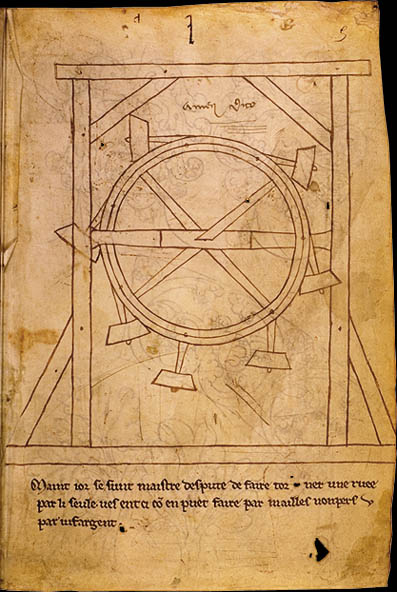 5
Maint ior se sunt maistre desputé de faire tor
ner une ruee
par li seule ves ent ci co en puet faire par mailles non pers
par vif argent.